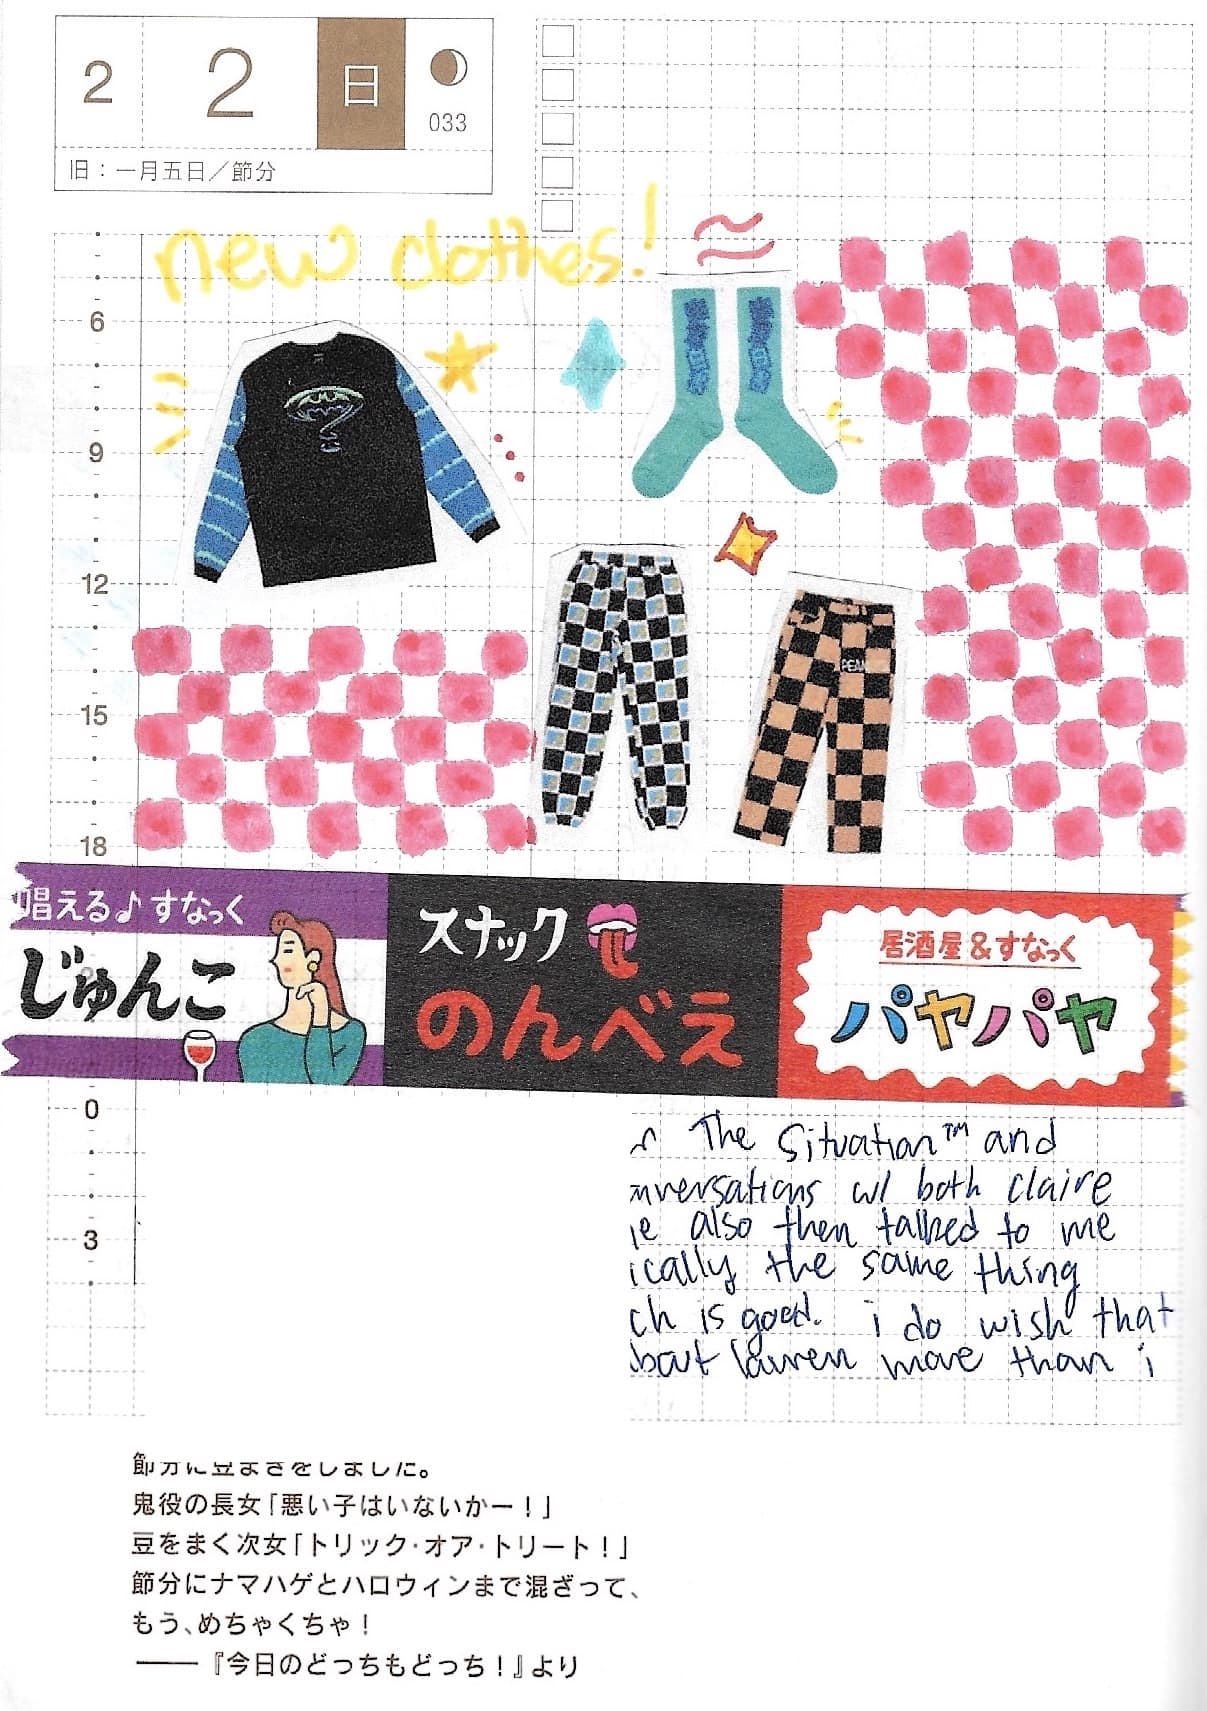 2 2 日
033
旧：一月五日／節分
new clothes!
6
9
12
PEA
15
18
唱える♪すなっく
じゅんこ
スナック
のんべえ
居酒屋＆すなっく
パヤパヤ
0
The Situation™ and
nversations w/ both claire
ie also then talked to me
ically the same thing
ch is good. i do wish that
bout lauren more than i
3
節分に豆まきをしました。
鬼役の長女「悪い子はいないかー！」
豆をまく次女「トリック・オア・トリート！」
節分にナマハゲとハロウィンまで混ざって、
もう、めちゃくちゃ！
──『今日のどっちもどっち！』より